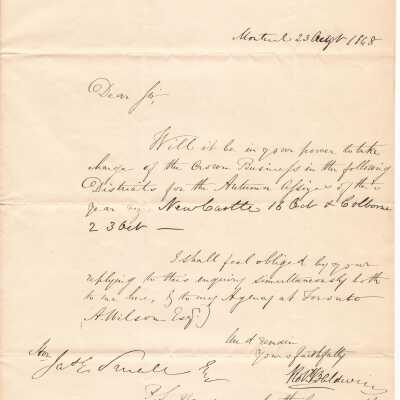 Montreal 23 Augt 1848
Dear Sir,
Will it be in your power to take
charge of the Crown Business in the following
Districts for the Autumn Assizes of this
year viz. New Castle 16 Oct & Colborne
23 Oct —
I shall feel obliged by your
replying to this enquiry simultaneously both
to me here, & to my Agency at Toronto
A Wilson Esq.
Yours faithfully
Robt Baldwin
Jas E Small Esq
P.S.